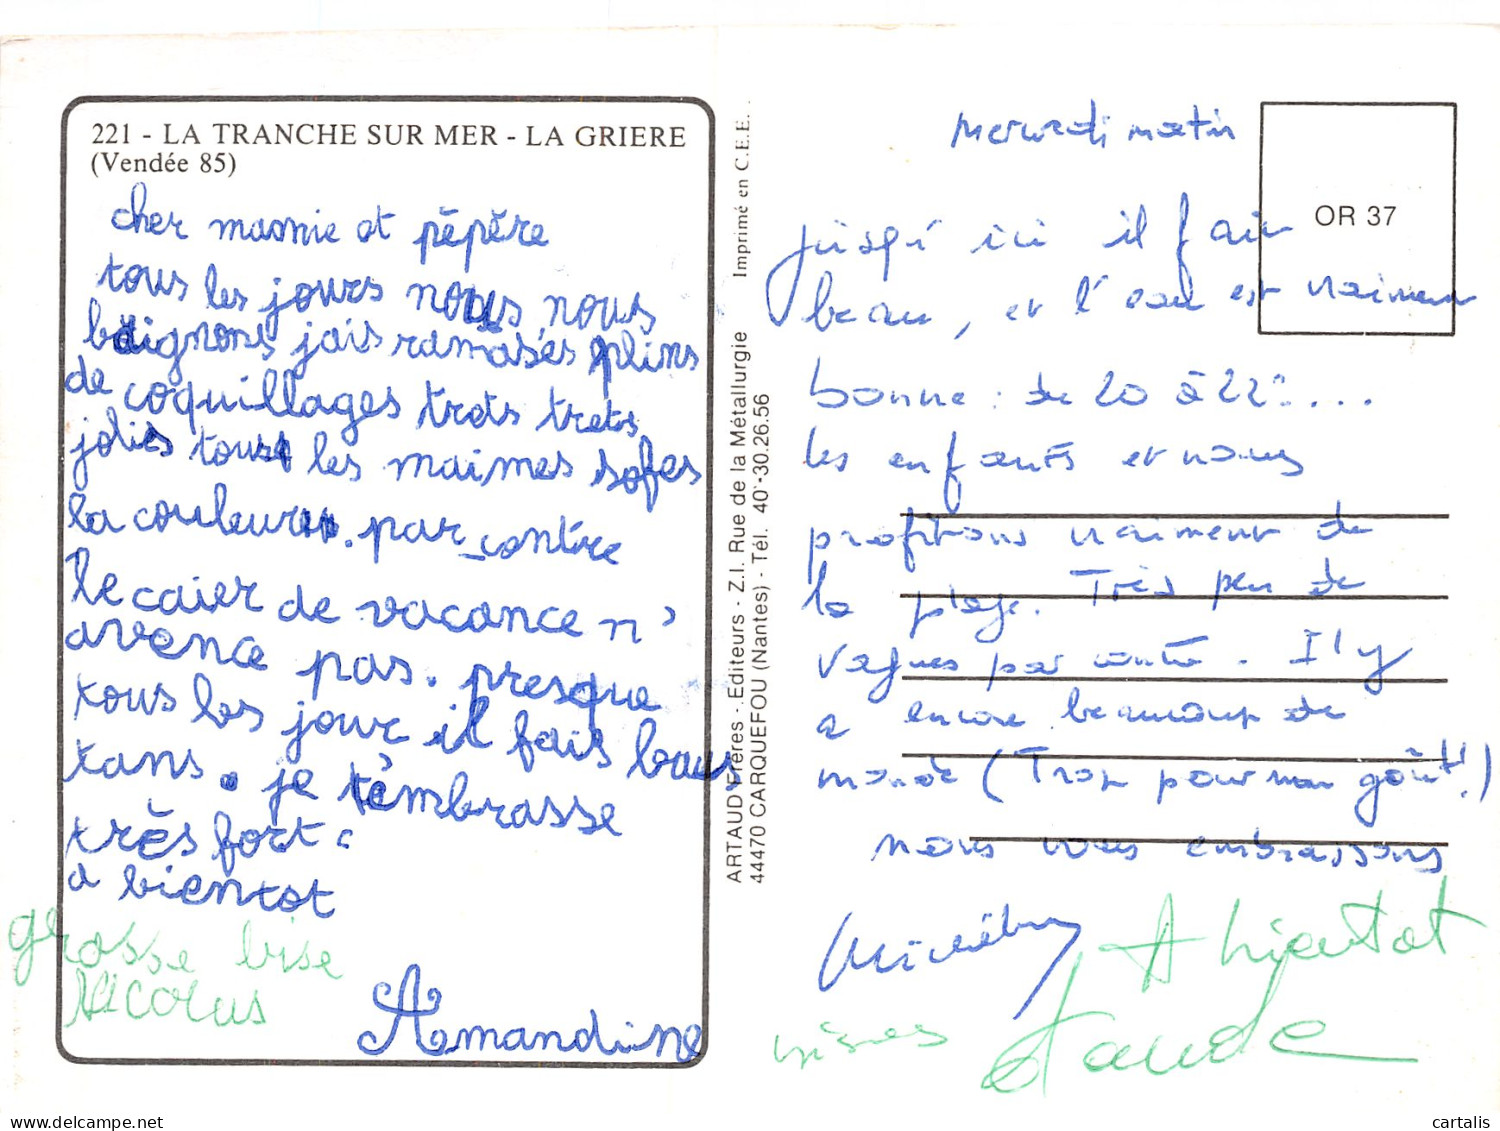 221 - LA TRANCHE SUR MER - LA GRIERE
(Vendée 85)
cher mamie et pépère
tous les jours nous nous
baignons jais ramasés plins
de coquillages trets trets
jolies tous les maimes sofes
la couleur. par contre
le caier de vacance n'
avence pas. presque
tous les jour il fais baus
tans. je t'embrasse
très fort.
a bientot
grosse bise
Nicolas
Amandine
Imprimé en C.E.E.
ARTAUD Frères - Editeurs - Z.I. Rue de la Métallurgie
44470 CARQUEFOU (Nantes) - Tél. 40-30.26.56
OR 37
Mercredi matin
jusqu'ici il fait
beau, et l'eau est vraiment
bonne : de 20 à 22°...
les enfants et nous
profitons vraiment de
la plage. Très peu de
vagues par contre. Il y
a encore beaucoup de
monde (Trop pour mon goût!)
nous vous embrassons
A bientot
bises